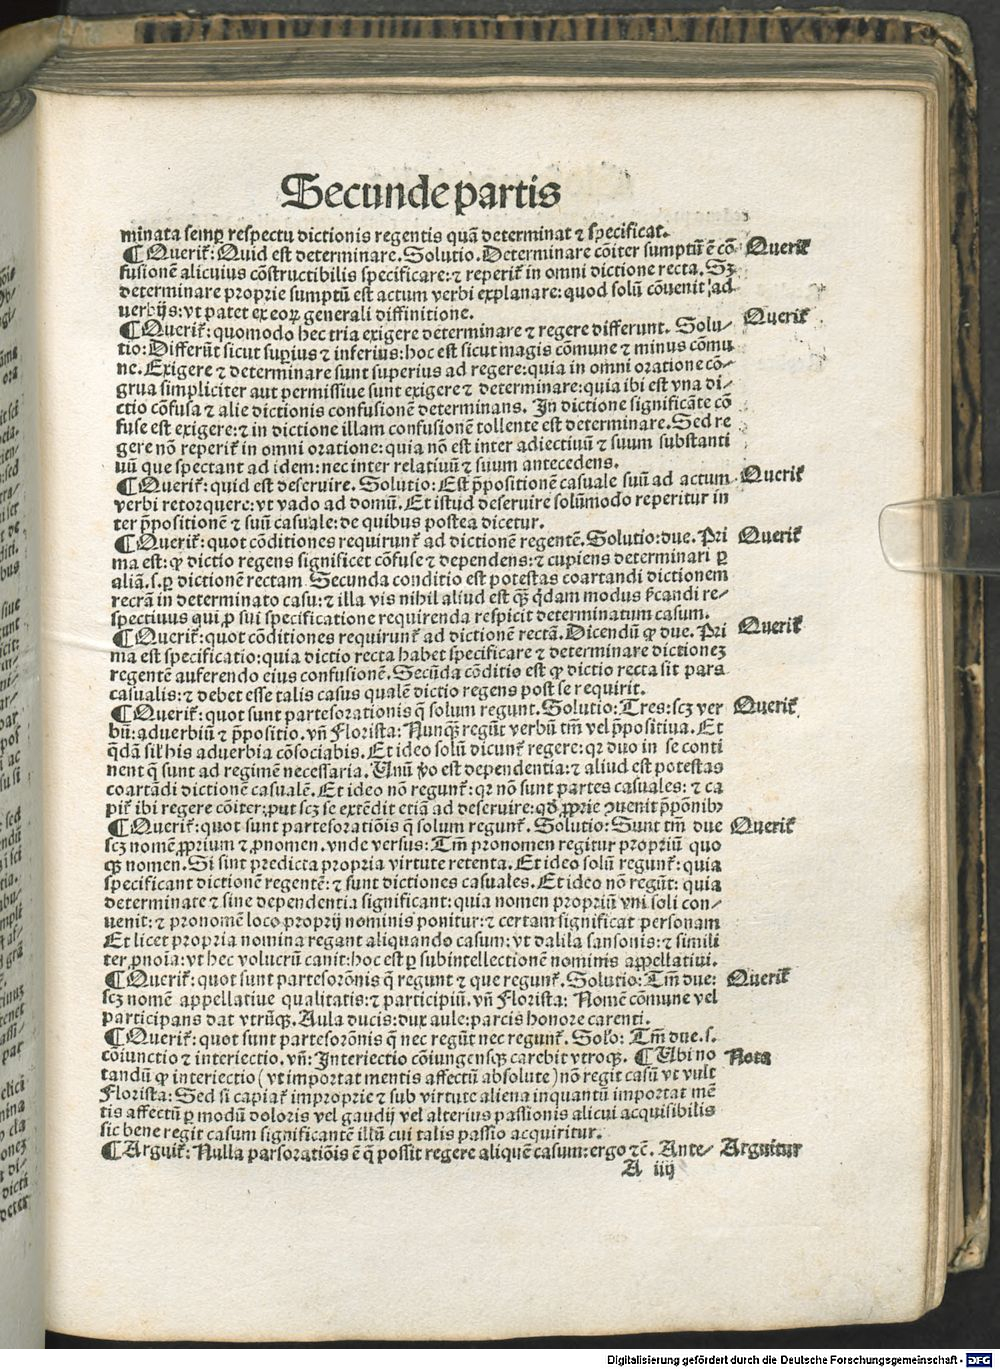 Secunde partis
minata semꝑ respectu dictionis regentis quã determinat ⁊ specificat.
¶ Querit̃: Quid est determinare. Solutio. Determinare cõiter sumptũ ẽ cõ- Querit̃
fusionẽ alicuius cõstructibilis specificare: ⁊ reperit̃ in omni dictione recta. Sꝫ
determinare proprie sumptũ est actum verbi explanare: quod solũ cõuenit ad
uerbijs: vt patet ex eoꝝ generali diffinitione.
¶ Querit̃: quomodo hec tria exigere determinare ⁊ regere differunt. Solu- Querit̃
tio: Differũt sicut supius ⁊ inferius: hoc est sicut magis cõmune ⁊ minus cõmu
ne. Exigere ⁊ determinare sunt superius ad regere: quia in omni oratione cõ-
grua simpliciter aut permissiue sunt exigere ⁊ determinare: quia ibi est vna di-
ctio cõfusa ⁊ alie dictionis confusionẽ determinans. In dictione significãte cõ
fuse est exigere: ⁊ in dictione illam confusionẽ tollente est determinare. Sed re
gere nõ reperit̃ in omni oratione: quia nõ est inter adiectiuũ ⁊ suum substanti
uũ que spectant ad idem: nec inter relatiuũ ⁊ suum antecedens.
¶ Querit̃: quid est deseruire. Solutio: Est p̃positionẽ casuale suũ ad actum Querit̃
verbi retorquere: vt vado ad domũ. Et istud deseruire solũmodo reperitur in
ter p̃positionẽ ⁊ suũ casuale: de quibus postea dicetur.
¶ Querit̃: quot cõditiones requirunt̃ ad dictionẽ regentẽ. Solutio: due. Pri Querit̃
ma est: ꝙ dictio regens significet cõfuse ⁊ dependens: ⁊ cupiens determinari ꝑ
aliã .s. ꝑ dictionẽ rectam Secunda conditio est potestas coartandi dictionem
rectã in determinato casu: ⁊ illa vis nihil aliud est qꝫ̃ q̃dam modus s̃candi re-
spectiuus qui ꝓ sui specificatione requirenda respicit determinatum casum.
¶ Querit̃: quot cõditiones requirunt̃ ad dictionẽ rectã. Dicendũ ꝙ due. Pri Querit̃
ma est specificatio: quia dictio recta habet specificare ⁊ determinare dictionez
regentẽ auferendo eius confusionẽ. Secũda cõditio est ꝙ dictio recta sit pars
casualis: ⁊ debet esse talis casus qualẽ dictio regens post se requirit.
¶ Querit̃: quot sunt partes orationis q̃ solum regunt. Solutio: Tres: scꝫ ver Querit̃
bũ: aduerbiũ ⁊ p̃positio. vñ Florista: Nunqꝫ regũt verbũ tm̃ vel p̃positiua. Et
q̃dã sil̃ his aduerbia cõsociabis. Et ideo solũ dicunt̃ regere: qꝛ duo in se conti
nent q̃ sunt ad regimẽ necessaria. Unũ ṽo est dependentia: ⁊ aliud est potestas
coartãdi dictionẽ casualẽ. Et ideo nõ regunt̃: qꝛ nõ sunt partes casuales: ⁊ ca
pit̃ ibi regere cõiter: ꝓut scꝫ se extẽdit etiã ad deseruire: qd̃ ꝓprie ꝯuenit p̃põnibꝫ
¶ Querit̃: quot sunt partes oratiõis q̃ solum regunt̃. Solutio: Sunt tm̃ due Querit̃
scꝫ nomẽ ꝓprium ⁊ ꝓnomen. vnde versus: Tm̃ pronomen regitur propriũ quo
qꝫ nomen. Si sint predicta propria virtute retenta. Et ideo solũ regunt̃: quia
specificant dictionẽ regentẽ: ⁊ sunt dictiones casuales. Et ideo nõ regũt: quia
determinate ⁊ sine dependentia significant: quia nomen propriũ vni soli con-
uenit: ⁊ pronomẽ loco proprij nominis ponitur: ⁊ certam significat personam
Et licet propria nomina regant aliquando casum: vt dalila sansonis: ⁊ simili
ter ꝓnoia: vt hec volucrũ canit: hoc est ꝑ subintellectionẽ nominis appellatiui.
¶ Querit̃: quot sunt partes orõnis q̃ regunt ⁊ que regunt̃. Solutio: Tm̃ due: Querit̃
scꝫ nomẽ appellatiue qualitatis: ⁊ participiũ. vñ Florista: Nomẽ cõmune vel
participans dat vtrũqꝫ. Aula ducis: dux aule: parcis honore carenti.
¶ Querit̃: quot sunt partes orõnis q̃ nec regũt nec regunt̃. Solõ: Tm̃ due .s.
cõiunctio ⁊ interiectio. vñ: Interiectio cõiungensqꝫ carebit vtroqꝫ. ¶ Ubi no Nota
tandũ ꝙ interiectio (vt importat mentis affectũ absolute) nõ regit casũ vt vult
Florista: Sed si capiat̃ improprie ⁊ sub virtute aliena inquantũ importat mẽ
tis affectũ ꝑ modũ doloris vel gaudij vel alterius passionis alicui acquisibilis
sic bene regit casum significantẽ illũ cui talis passio acquiritur.
¶ Arguit̃: Nulla pars oratiõis ẽ q̃ possit regere aliquẽ casum: ergo ⁊c̃. Ante- Arguitur
A iiij
Digitalisierung gefördert durch die Deutsche Forschungsgemeinschaft - DFG